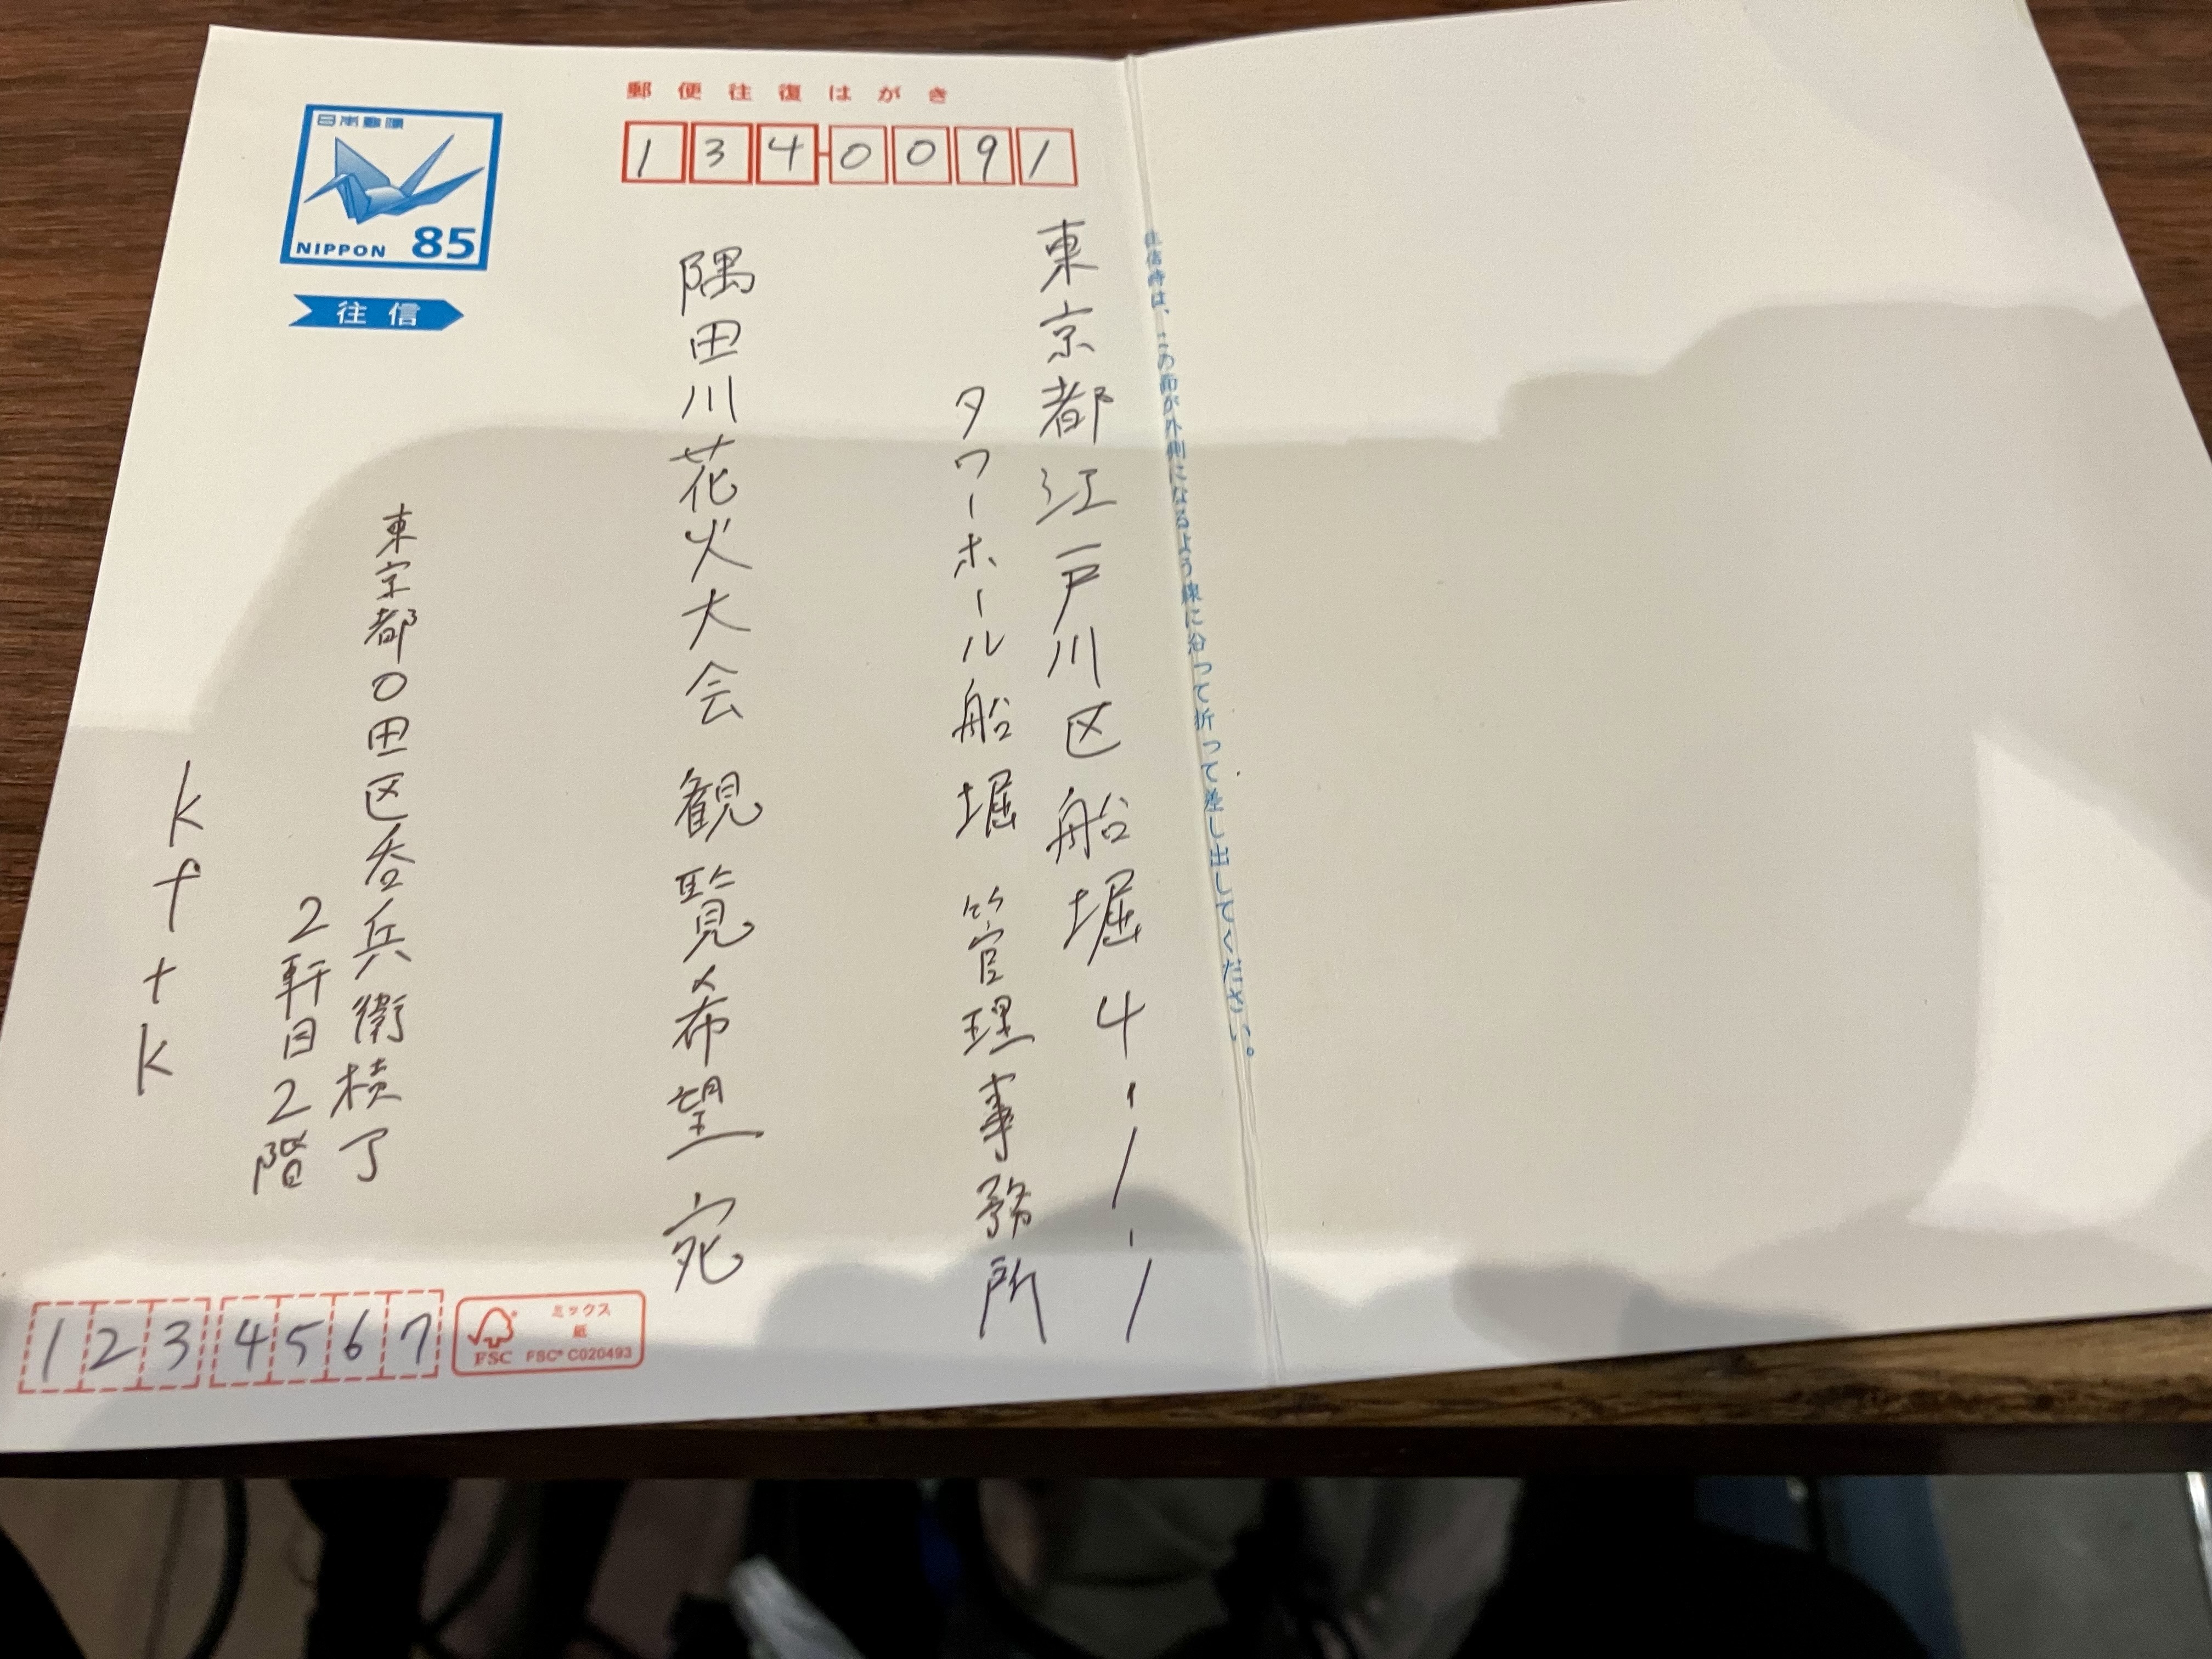 郵便往復はがき
134-0091
日本郵便
NIPPON 85
往信
往信時は、この面が外側になるよう線に沿って折って差し出してください。
東京都江戸川区船堀4-1-1
タワーホール船堀 管理事務所
隅田川花火大会 観覧希望 宛
東京都〇田区呑兵衛横丁
2軒目2階
kftk
1234567
ミックス
紙
FSC FSC® C020493